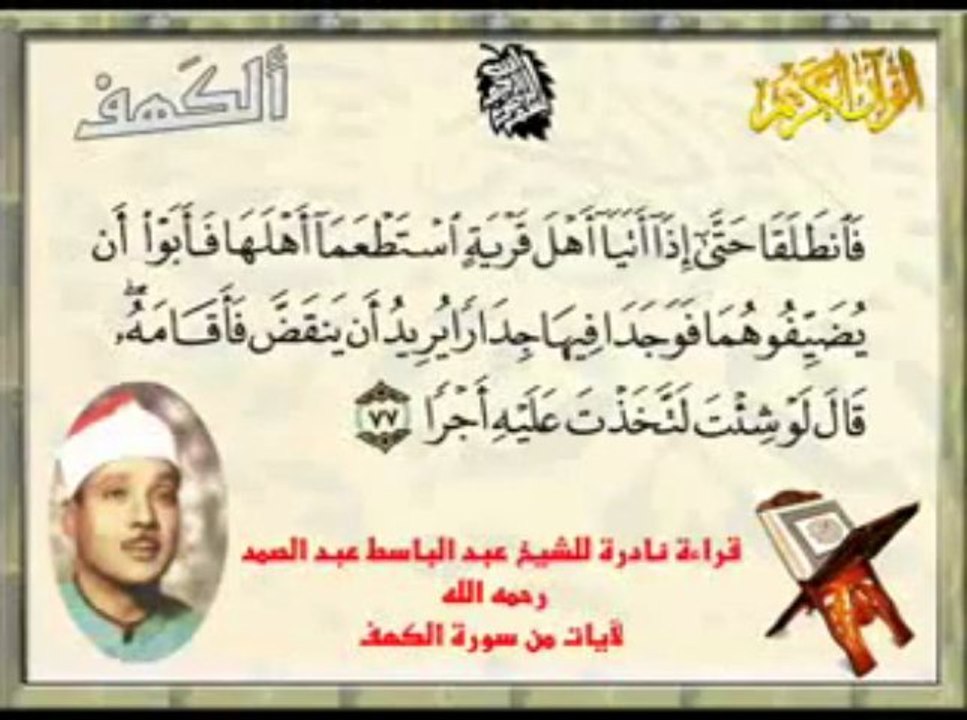 الكهف
القرآن الكريم
فَٱنطَلَقَا حَتَّىٰٓ إِذَآ أَتَيَآ أَهْلَ قَرْيَةٍ ٱسْتَطْعَمَآ أَهْلَهَا فَأَبَوْا۟ أَن
يُضَيِّفُوهُمَا فَوَجَدَا فِيهَا جِدَارًا يُرِيدُ أَن يَنقَضَّ فَأَقَامَهُۥۖ
قَالَ لَوْ شِئْتَ لَتَّخَذْتَ عَلَيْهِ أَجْرًا ٧٧
قراءة نادرة للشيخ عبد الباسط عبد الصمد
رحمه الله
لآيات من سورة الكهف